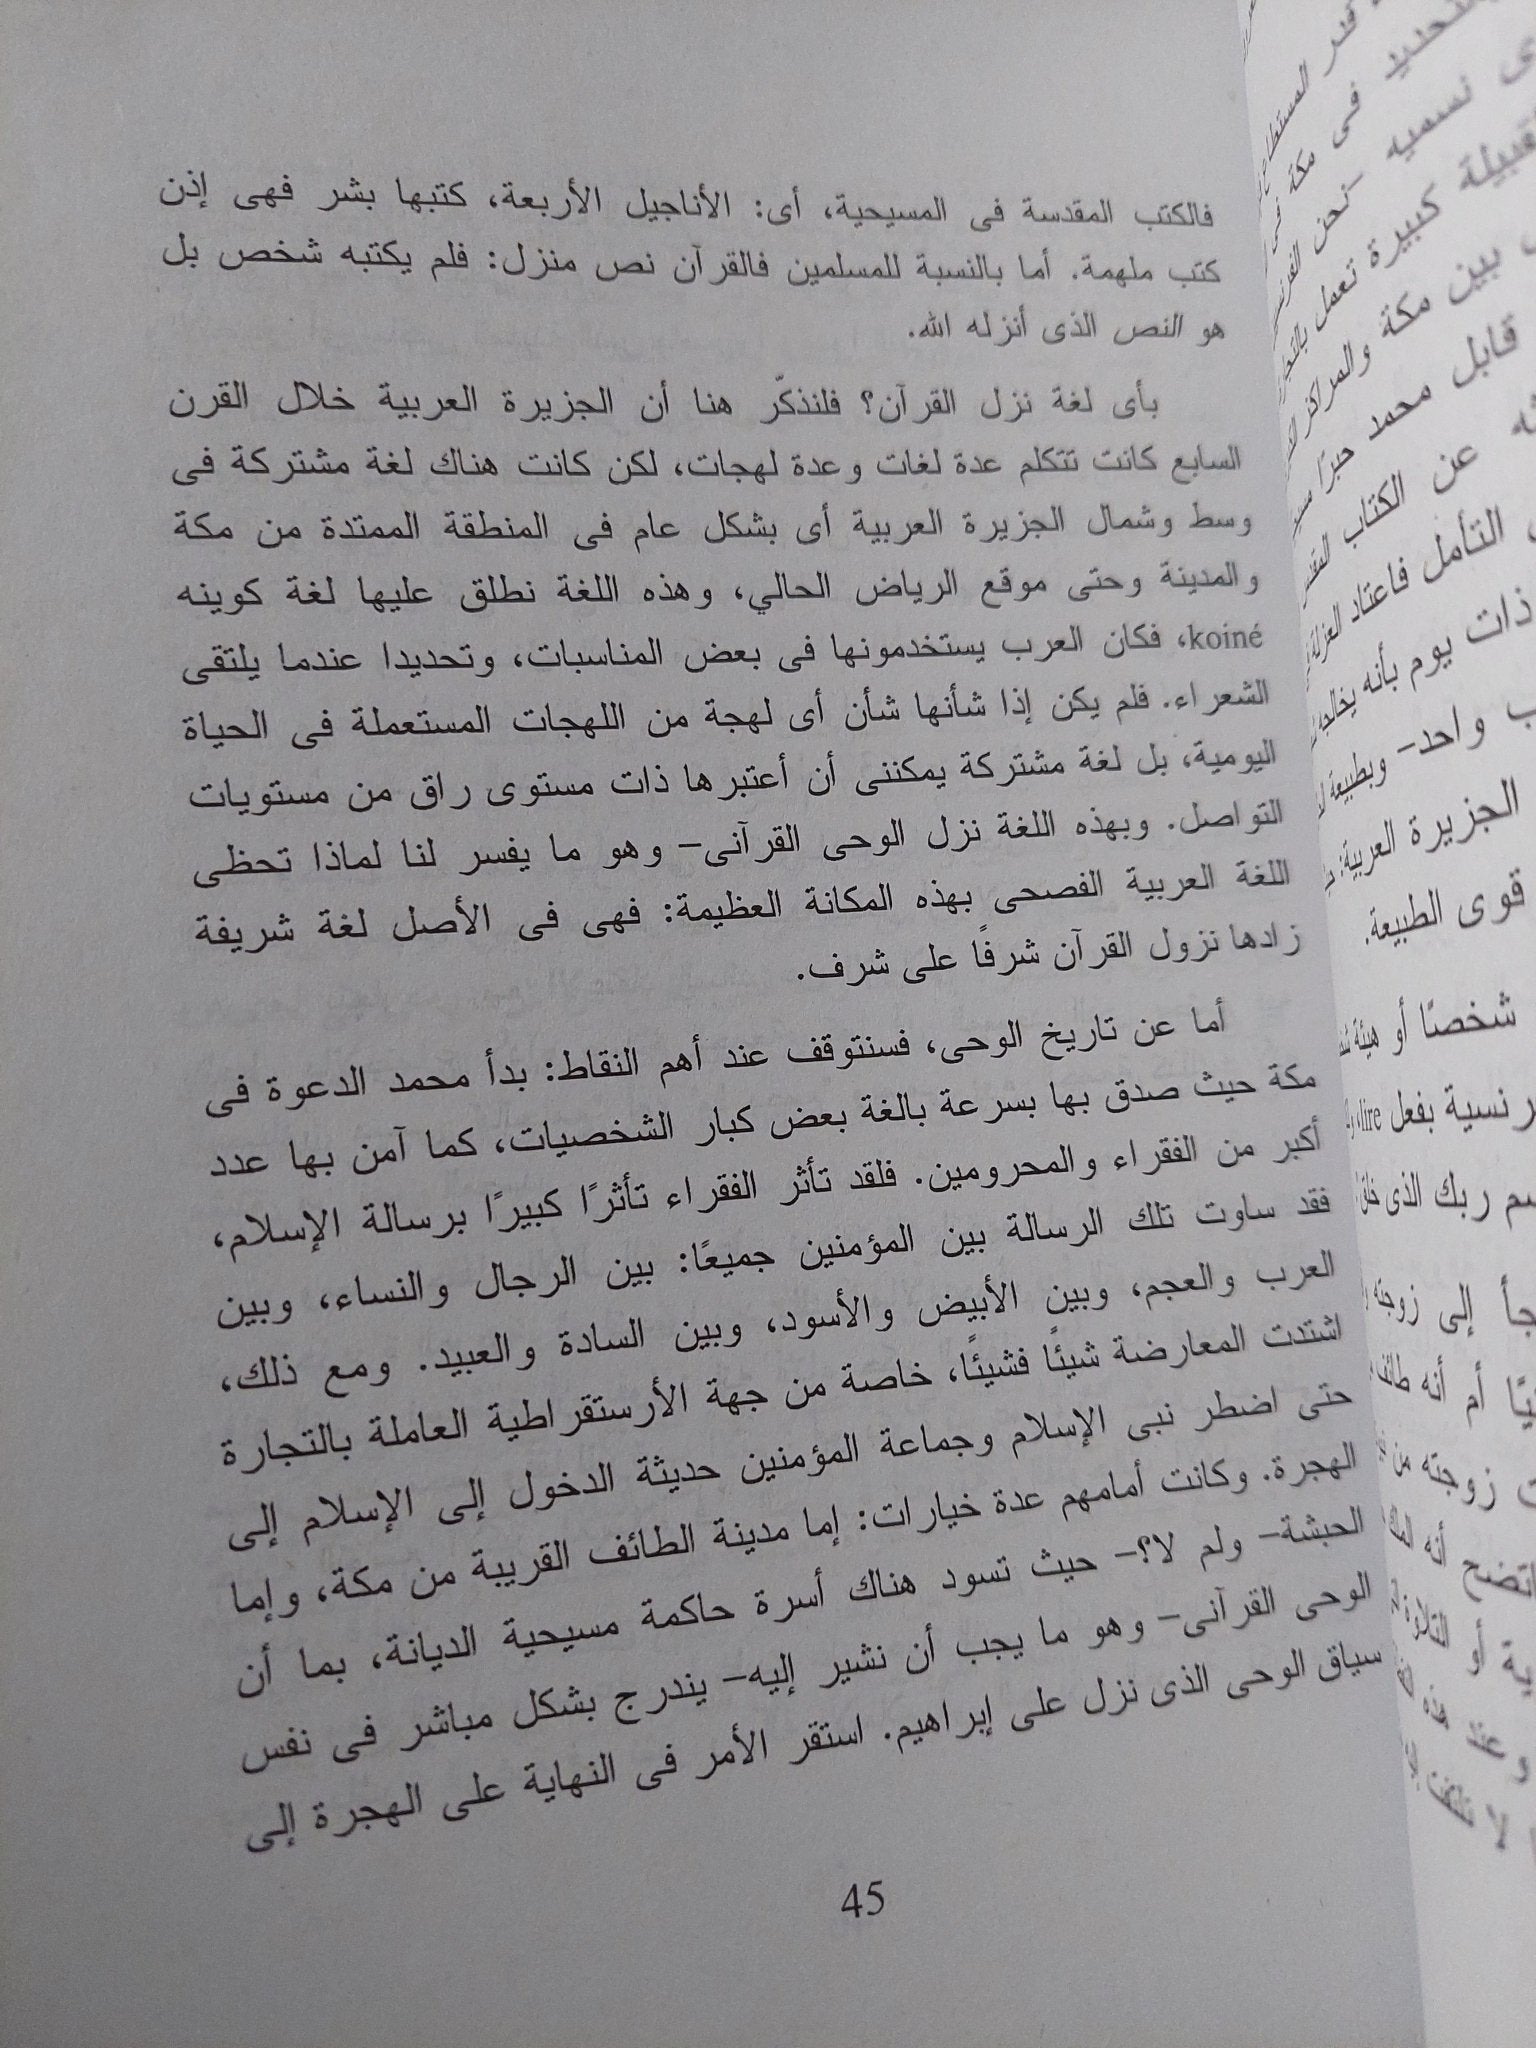 فالكتب المقدسة فى المسيحية، أى: الأناجيل الأربعة، كتبها بشر فهى إذن
كتب ملهمة. أما بالنسبة للمسلمين فالقرآن نص منزل: فلم يكتبه شخص بل
هو النص الذى أنزله الله.
بأى لغة نزل القرآن؟ فلنذكّر هنا أن الجزيرة العربية خلال القرن
السابع كانت تتكلم عدة لغات وعدة لهجات، لكن كانت هناك لغة مشتركة فى
وسط وشمال الجزيرة العربية أى بشكل عام فى المنطقة الممتدة من مكة
والمدينة وحتى موقع الرياض الحالي، وهذه اللغة نطلق عليها لغة كوينه
koiné، فكان العرب يستخدمونها فى بعض المناسبات، وتحديدا عندما يلتقى
الشعراء. فلم يكن إذا شأنها شأن أى لهجة من اللهجات المستعملة فى الحياة
اليومية، بل لغة مشتركة يمكننى أن أعتبرها ذات مستوى راق من مستويات
التواصل. وبهذه اللغة نزل الوحى القرآنى– وهو ما يفسر لنا لماذا تحظى
اللغة العربية الفصحى بهذه المكانة العظيمة: فهى فى الأصل لغة شريفة
زادها نزول القرآن شرفًا على شرف.
أما عن تاريخ الوحى، فسنتوقف عند أهم النقاط: بدأ محمد الدعوة فى
مكة حيث صدق بها بسرعة بالغة بعض كبار الشخصيات، كما آمن بها عدد
أكبر من الفقراء والمحرومين. فلقد تأثر الفقراء تأثرًا كبيرًا برسالة الإسلام،
فقد ساوت تلك الرسالة بين المؤمنين جميعًا: بين الرجال والنساء، وبين
العرب والعجم، وبين الأبيض والأسود، وبين السادة والعبيد. ومع ذلك،
اشتدت المعارضة شيئًا فشيئًا، خاصة من جهة الأرستقراطية العاملة بالتجارة
حتى اضطر نبى الإسلام وجماعة المؤمنين حديثة الدخول إلى الإسلام إلى
الهجرة. وكانت أمامهم عدة خيارات: إما مدينة الطائف القريبة من مكة، وإما
الحبشة– ولم لا؟– حيث تسود هناك أسرة حاكمة مسيحية الديانة، بما أن
الوحى القرآنى– وهو ما يجب أن نشير إليه– يندرج بشكل مباشر فى نفس
سياق الوحى الذى نزل على إبراهيم. استقر الأمر فى النهاية على الهجرة إلى
45
المستطاع
فى مكة فى
نسميه نحن
كبيرة تعمل
بين مكة والمراكز
قابل محمد حبرًا
عن الكتاب المقدس
التأمل فاعتاد العزلة
ذات يوم بأنه
واحد– وبطبيعة
الجزيرة العربية:
قوى الطبيعة.
شخصًا أو هيئة
بفعل lire
ربك الذى خلق
إلى زوجته
أم أنه
زوجته من
أنه
أو التلاوة
وعند هذه
لا